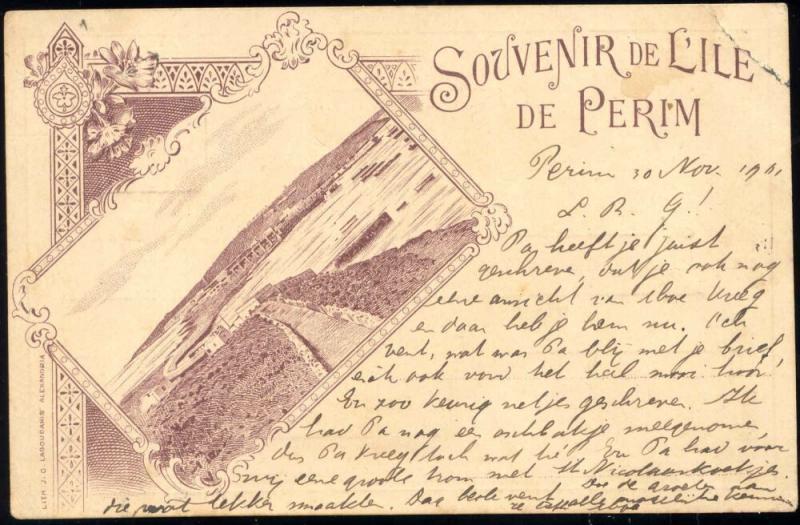 SOUVENIR DE L'ILE
DE PERIM
Perim 30 Nov. 1901
L. B. G!
Pa heeft je juist
geschreve, dat je ook nog
eene ansicht van kreeg
en daar heb je hem nu. Och
vent, wat was Pa blij met je brief,
zich ook voor het heel mooi hoor!
En zoo keurig netjes geschreven. Ik
had Pa nog een meegenomen,
dus Pa kreeg toch wat hé! En Pa had voor
mij eene groote trom met St Nicolaaskoekjes,
die wat lekker smaakten. Dag beste vent
Doe de groeten aan
LITH. J. C. LAGOUDAKIS ALEXANDRIA